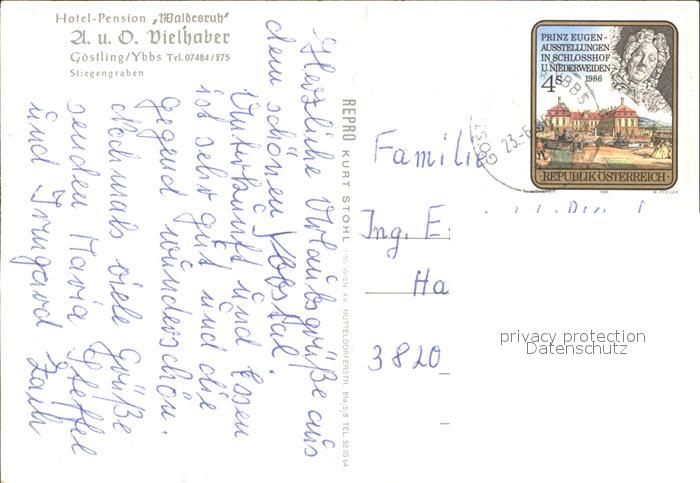 Hotel-Pension „Waldesruh"
A. u. O. Vielhaber
Göstling/Ybbs Tel. 07484/275
Stiegengraben
Herzliche Urlaubsgrüße aus
dem schönen Ybbstal.
Unterkunft und Essen
ist sehr gut und die
Gegend wunderschön.
Nochmals viele Grüße
senden Maria Steffel
und Irmgard
REPRO KURT STOHL 1150 WIEN XV, HÜTTELDORFERSTR. 81a/5/8 TEL. 92 03 64
PRINZ EUGEN-
AUSSTELLUNGEN
IN SCHLOSSHOF
U. NIEDERWEIDEN
1986
4S
REPUBLIK ÖSTERREICH
1986
Familie
Ing. E
Ha
3820
privacy protection
Datenschutz